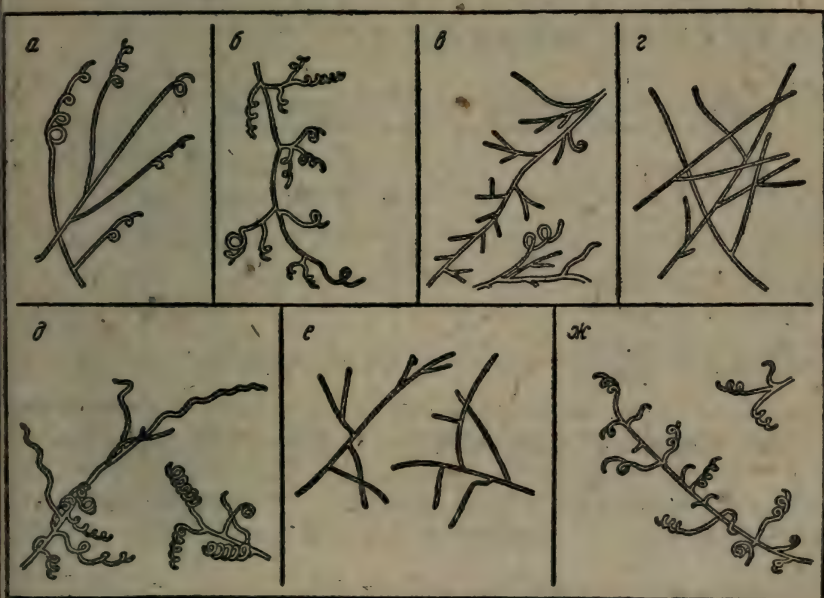 а б в г
д е ж